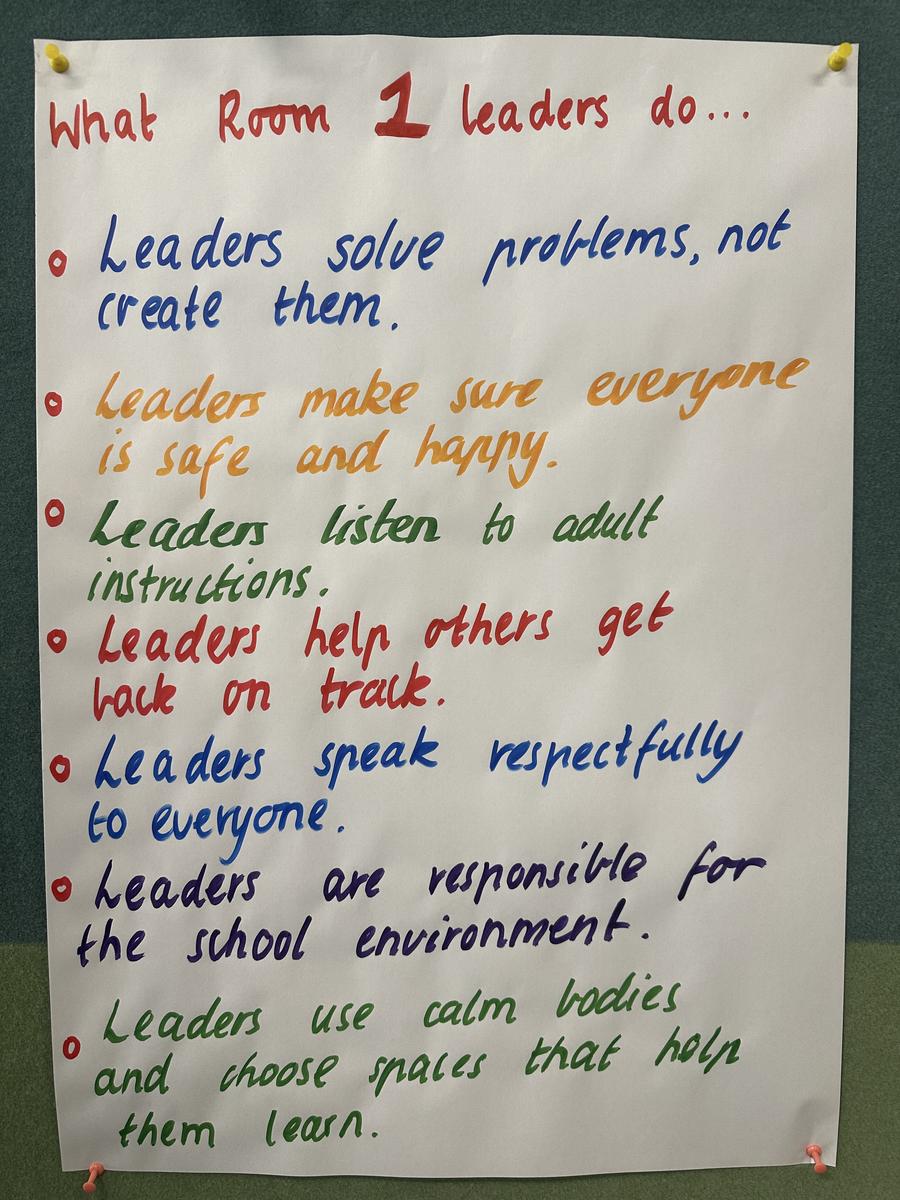 What Room 1 leaders do...
Leaders solve problems, not
create them.
Leaders make sure everyone
is safe and happy.
Leaders listen to adult
instructions.
Leaders help others get
back on track.
Leaders speak respectfully
to everyone.
Leaders are responsible for
the school environment.
Leaders use calm bodies
and choose spaces that help
them learn.